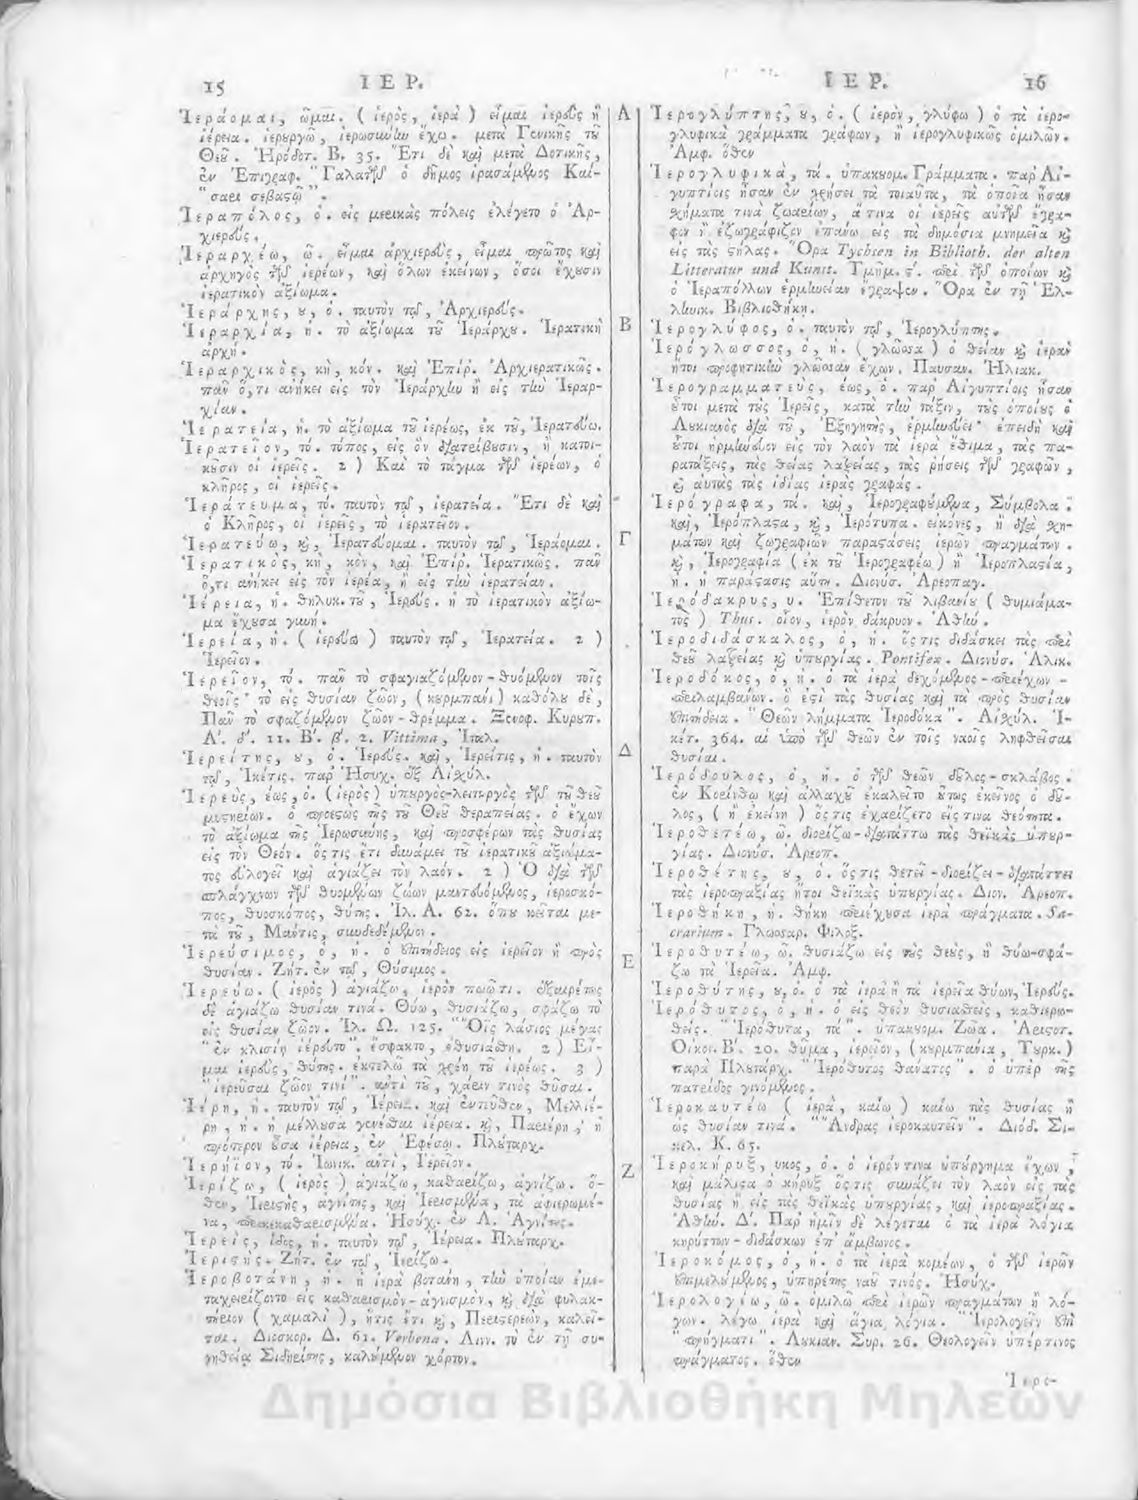 15 ΙΕΡ.
Ἱεράομαι, ῶμαι. ( ἱερὸς, ἱερὰ ) εἶμαι ἱερεὺς ἢ
ἱέρεια. ἱερουργῶ, ἱερωσύνην ἔχω. μετὰ Γενικῆς τοῦ
Θεοῦ. Ἡρόδοτ. Β. 35. Ἔτι δὲ καὶ μετὰ Δοτικῆς,
ἐν Ἐπιγραφ. "Γαλατῶν ὁ δῆμος ἱρασάμενος Καί-
"σαρι σεβαστῷ".
Ἱεραπόλος, ὁ. εἰς μερικὰς πόλεις ἐλέγετο ὁ Ἀρ-
χιερεύς.
Ἱεραρχέω, ῶ. εἶμαι ἀρχιερεὺς, εἶμαι πρῶτος καὶ
ἀρχηγὸς τῶν ἱερέων, καὶ ὅλων ἐκείνων, ὅσοι ἔχουσιν
ἱερατικὸν ἀξίωμα.
Ἱεράρχης, ου, ὁ. ταυτὸν τῷ, Ἀρχιερεύς.
Ἱεραρχία, ἡ. τὸ ἀξίωμα τοῦ Ἱεράρχου. Ἱερατικὴ
ἀρχή.
Ἱεραρχικὸς, κὴ, κόν. καὶ Ἐπίρ. Ἀρχιερατικῶς.
πᾶν ὅ,τι ἀνήκει εἰς τὸν Ἱεράρχην ἢ εἰς τὴν Ἱεραρ-
χίαν.
Ἱερατεία, ἡ. τὸ ἀξίωμα τοῦ ἱερέως, ἐκ τοῦ, Ἱερατεύω.
Ἱερατεῖον, τό. τόπος, εἰς ὃν διατρίβουσιν, ἢ κατοι-
κοῦσιν οἱ ἱερεῖς. 2 ) Καὶ τὸ τάγμα τῶν ἱερέων, ὁ
κλῆρος, οἱ ἱερεῖς.
Ἱεράτευμα, τό. ταυτὸν τῷ, ἱερατεία. Ἔτι δὲ καὶ
ὁ Κλῆρος, οἱ ἱερεῖς, τὸ ἱερατεῖον.
Ἱερατεύω, καὶ, Ἱερατεύομαι. ταυτὸν τῷ, Ἱεράομαι.
Ἱερατικὸς, κὴ, κόν, καὶ Ἐπίρ. Ἱερατικῶς. πᾶν
ὅ,τι ἀνήκει εἰς τὸν ἱερέα, ἢ εἰς τὴν ἱερατείαν.
Ἱέρεια, ἡ. θηλυκ. τοῦ, Ἱερεύς. ἡ τὸ ἱερατικὸν ἀξίω-
μα ἔχουσα γυνή.
Ἱερεία, ἡ. ( ἱερεύω ) ταυτὸν τῷ, Ἱερατεία. 2 )
Ἱερεῖον.
Ἱερεῖον, τό. πᾶν τὸ σφαγιαζόμενον-θυόμενον τοῖς
θεοῖς· τὸ εἰς θυσίαν ζῶον, ( κουρμπάνι ) καθόλου δὲ,
Πᾶν τὸ σφαζόμενον ζῶον-θρέμμα. Ξενοφ. Κυρουπ.
Α'. δ'. 11. Β'. β'. 2. Vittima, Ἰταλ.
Ἱερείτης, ου, ὁ. Ἱερεύς. καὶ, Ἱερεῖτις, ἡ. ταυτὸν
τῷ, Ἱκέτις. παρ' Ἡσυχ. ἐξ Αἰσχύλ.
Ἱερεὺς, έως, ὁ. (ἱερὸς) ὑπουργὸς-λειτουργὸς τῶν τοῦ θεοῦ
μυστηρίων. ὁ προεστὼς τῆς τοῦ Θεοῦ θεραπείας. ὁ ἔχων
τὸ ἀξίωμα τῆς Ἱερωσύνης, καὶ προσφέρων τὰς θυσίας
εἰς τὸν Θεόν. ὅστις ἔτι δυνάμει τοῦ ἱερατικοῦ ἀξιώμα-
τος εὐλογεῖ καὶ ἁγιάζει τὸν λαόν. 2 ) Ὁ διὰ τῶν
σπλάγχνων τῶν θυομένων ζώων μαντευόμενος, ἱεροσκό-
πος, θυοσκόπος, θύτης. Ἰλ. Α. 62. ὅπου κεῖται με-
τὰ τοῦ, Μάντις, συνδεδεμένον.
Ἱερεύσιμος, ὁ, ἡ. ὁ ἐπιτήδειος εἰς ἱερεῖον ἢ πρὸς
θυσίαν. Ζήτ. ἐν τῷ, Θύσιμος.
Ἱερεύω. ( ἱερὸς ) ἁγιάζω, ἱερὸν ποιῶτι. ἐξαιρέτως
δὲ ἁγιάζω θυσίαν τινά. Θύω, θυσιάζω, σφάζω τὸ
εἰς θυσίαν ζῶον. Ἰλ. Ω. 125. "Οἶς λάσιος μέγας
"ἐν κλισίῃ ἱέρευτο". ἔσφακτο, ἐθυσιάσθη. 2 ) Εἶ-
μαι ἱερεὺς, θύτης. ἐκτελῶ τὰ χρέη τοῦ ἱερέως. 3 )
"ἱερεῦσαι ζῶον τινί". ἀντὶ τοῦ, χάριν τινὸς θῦσαι.
Ἱέρη, ἡ. ταυτὸν τῷ, Ἱέρεια. καὶ ἐντεῦθεν, Μελλιέ-
ρη, ἡ. ἡ μέλλουσα γενέσθαι ἱέρεια. καὶ, Παριέρη, ἡ
πρότερον οὖσα ἱέρεια, ἐν Ἐφέσῳ. Πλούταρχ.
Ἱερήϊον, τό. Ἰωνικ. ἀντὶ, Ἱερεῖον.
Ἱερίζω, ( ἱερὸς ) ἁγιάζω, καθαρίζω, ἁγνίζω. ὅ-
θεν, Ἱεριστὴς, ἁγνίτης, καὶ Ἱερισμένα, τὰ ἀφιερωμέ-
να, περικεκαθαρισμένα. Ἡσύχ. ἐν Λ. Ἁγνίτης.
Ἱερὶς, ίδος, ἡ. ταυτὸν τῷ, Ἱέρεια. Πλούταρχ.
Ἱεριστής. Ζήτ. ἐν τῷ, Ἱερίζω.
Ἱεροβοτάνη, ἡ. ἡ ἱερὰ βοτάνη, τὴν ὁποίαν ἐμε-
ταχειρίζοντο εἰς καθαρισμὸν-ἁγνισμὸν, καὶ διὰ φυλακ-
τήριον ( χαμαλὶ ), ἥτις ἔτι καὶ, Περιστερεὼν, καλεῖ-
ται. Διοσκορ. Δ. 61. Verbena. Λινν. τὸ ἐν τῇ συ-
νηθείᾳ Σιδηρίτης, καλούμενον χόρτον.
Α
Β
Γ
Δ
Ε
Ζ
ΙΕΡ. 16
Ἱερογλύπτης, ου, ὁ. ( ἱερὸν, γλύφω ) ὁ τὰ ἱερο-
γλυφικὰ γράμματα γράφων, ἢ ἱερογλυφικῶς ὁμιλῶν.
Ἀμφ. ὅθεν
Ἱερογλυφικὰ, τά. ὑπακουομ. Γράμματα. παρ' Αἰ-
γυπτίοις ἦσαν ἐν χρήσει τὰ τοιαῦτα, τὰ ὁποῖα ἦσαν
σχήματα τινὰ ζωαρίων, ἅ τινα οἱ ἱερεῖς αὐτῶν ἔγρα-
φον ἢ ἐζωγράφιζον ἐπάνω εἰς τὰ δημόσια μνημεῖα καὶ
εἰς τὰς στήλας. Ὅρα Tychsen in Biblioth. der alten
Litteratur und Kunst. Τμῆμ. ς'. περὶ τῶν ὁποίων καὶ
ὁ Ἱεραπόλλων ἑρμηνείαν ἔγραψεν. Ὅρα ἐν τῇ Ἑλ-
ληνικ. Βιβλιοθήκῃ.
Ἱερογλύφος, ὁ. ταυτὸν τῷ, Ἱερογλύπτης.
Ἱερόγλωσσος, ὁ, ἡ. ( γλῶσσα ) ὁ θείαν καὶ ἱερὰν
ἤτοι προφητικὴν γλῶσσαν ἔχων. Παυσαν. Ἠλιακ.
Ἱερογραμματεὺς, έως, ὁ. παρ' Αἰγυπτίοις ἦσαν
οὗτοι μετὰ τοὺς Ἱερεῖς, κατὰ τὴν τάξιν, τοὺς ὁποίους ὁ
Λουκιανὸς διὰ τοῦ, Ἐξηγητὴς, ἑρμηνεύει· ἐπειδὴ καὶ
οὗτοι ἡρμήνευον εἰς τὸν λαὸν τὰ ἱερὰ ἔθιμα, τὰς πα-
ρατάξεις, τὰς θείας λατρείας, τὰς ῥήσεις τῶν γραφῶν,
καὶ αὐτὰς τὰς ἰδίας ἱερὰς γραφάς.
Ἱερόγραφα, τά. καὶ, Ἱερογραφούμενα, Σύμβολα.
καὶ, Ἱερόπλαστα, καὶ, Ἱερότυπα. εἰκόνες, ἢ διὰ σχη-
μάτων καὶ ζωγραφιῶν παραστάσεις ἱερῶν πραγμάτων.
καὶ, Ἱερογραφία ( ἐκ τοῦ Ἱερογραφέω ) ἢ Ἱεροπλαστία,
ἡ. ἡ παράστασις αὕτη. Διονύσ. Ἀρεοπαγ.
Ἱερόδακρυς, υ. Ἐπίθετον τοῦ λιβανίου ( θυμιάμα-
τος ) Thus. οἷον, ἱερὸν δάκρυον. Ἀθήν.
Ἱεροδιδάσκαλος, ὁ, ἡ. ὅστις διδάσκει τὰς περὶ
θεοῦ λατρείας καὶ ὑπουργίας. Pontifex. Διονύσ. Ἁλικ.
Ἱεροδόκος, ὁ, ἡ. ὁ τὰ ἱερὰ δεχόμενος-περιέχων-
περιλαμβάνων. ὅ ἐστὶ τὰς θυσίας καὶ τὰ πρὸς θυσίαν
ἐπιτήδεια. "Θεῶν λήμματα Ἱεροδόκα". Αἰσχύλ. Ἱ-
κέτ. 364. αἱ ὑπὸ τῶν θεῶν ἐν τοῖς ναοῖς ληφθεῖσαι
θυσίαι.
Ἱερόδουλος, ὁ, ἡ. ὁ τῶν θεῶν δοῦλος-σκλάβος.
ἐν Κορίνθῳ καὶ ἀλλαχοῦ ἐκαλεῖτο οὕτως ἐκεῖνος ὁ δοῦ-
λος, ( ἢ ἐκείνη ) ὅστις ἐχαρίζετο εἴς τινα θεότητα.
Ἱεροθετέω, ῶ. διορίζω-διατάττω τὰς θεϊκὰς ὑπουρ-
γίας. Διονύσ. Ἀρεοπ.
Ἱεροθέτης, ου, ὁ. ὅστις θέτει-διορίζει-διατάττει
τὰς ἱεροπραξίας ἤτοι θεϊκὰς ὑπουργίας. Διον. Ἀρεοπ.
Ἱεροθήκη, ἡ. θήκη περιέχουσα ἱερὰ πράγματα. Sa-
crarium. Γλωσσαρ. Φιλοξ.
Ἱεροθυτέω, ῶ. θυσιάζω εἰς τοὺς θεοὺς, ἢ θύω-σφά-
ζω τὰ Ἱερεῖα. Ἀμφ.
Ἱεροθύτης, ου, ὁ. ὁ τὰ ἱερὰ ἢ τὰ ἱερεῖα θύων, Ἱερεύς.
Ἱερόθυτος, ὁ, ἡ. ὁ εἰς θεὸν θυσιασθεὶς, καθιερω-
θείς. "Ἱερόθυτα, τά". ὑπακουομ. Ζῶα. Ἀριστ.
Οἰκον. Β'. 20. θῦμα, ἱερεῖον, ( κουρμπάνια, Τουρκ. )
παρὰ Πλουτάρχ. "Ἱερόθυτος θάνατος". ὁ ὑπὲρ τῆς
πατρίδος γινόμενος.
Ἱεροκαυτέω ( ἱερὰ, καίω ) καίω τὰς θυσίας ἢ
ὡς θυσίαν τινά. "Ἄνδρας ἱεροκαυτεῖν". Διόδ. Σι-
κελ. Κ. 65.
Ἱεροκήρυξ, υκος, ὁ. ὁ ἱερόν τινα ὑπούργημα ἔχων,
καὶ μάλιστα ὁ κήρυξ ὅστις συνάζει τὸν λαὸν εἰς τὰς
θυσίας ἢ εἰς τὰς θεϊκὰς ὑπουργίας, καὶ ἱεροπραξίας.
Ἀθήν. Δ'. Παρ' ἡμῖν δὲ λέγεται ὁ τὰ ἱερὰ λόγια
κηρύττων-διδάσκων ἐπ' ἄμβωνος.
Ἱεροκόμος, ὁ, ἡ. ὁ τὰ ἱερὰ κομέων, ὁ τῶν ἱερῶν
ἐπιμελούμενος, ὑπηρέτης ναοῦ τινός. Ἡσύχ.
Ἱερολογέω, ῶ. ὁμιλῶ περὶ ἱερῶν πραγμάτων ἢ λό-
γων. λέγω ἱερὰ καὶ ἅγια λόγια. "Ἱερολογεῖν ἐπὶ
"πρήγματι". Λουκιαν. Συρ. 26. Θεολογεῖν ὑπέρ τινος
πράγματος. ὅθεν
Ἱερο-
Δημόσια Βιβλιοθήκη Μηλεών